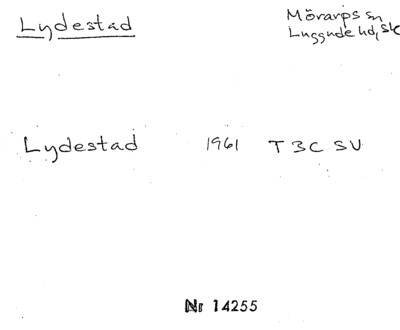 Lydestad
Mörarps sn
Luggude hd, Sk
Lydestad 1961 T 3C SV
Nr 14255